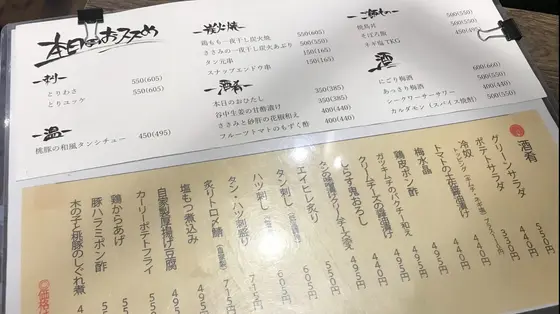 本日のおススメ
一刺り
とりわさ 550(605)
とりユッケ 550(605)
一温一
桃豚の和風タンシチュー 450(495)
一炭火焼一
鶏もも一夜干し炭火焼 550(605)
ささみの一夜干し炭火あぶり 500(550)
タン元串 150(165)
スナップエンドウ串 150(165)
一酒肴一
本日のおひたし 350(385)
谷中生姜の甘酢漬け 350(385)
ささみと砂肝の花椒和え 400(440)
フルーツトマトのもずく酢 400(440)
焼鳥丼 500(550)
そぼろ飯
ネギ塩TKG 450(495)
酒
にごり梅酒 600(660)
あっさり梅酒 500(550)
シークワーサーサワー 400(440)
カルダモン(スパイス焼酎) 500(550)
酒肴
グリーンサラダ
ポテトサラダ
冷奴
トマトの土佐醤油漬け 440円
梅水晶
鶏皮ポン酢 440円
ガツキムチのパクチー和え 495円
クリームチーズの醤油漬け 440円
しらす鬼おろし 495円
エイヒレ炙り
タン刺し 605円
ハツ刺し
タン・ハツ刺盛り 715円
炙りトロメ鯖 715円
自家製厚揚げ豆腐
塩もつ煮込み 495円
カーリーポテトフライ
鶏からあげ
豚ハラミポン酢
木の子と桃豚のしぐれ煮